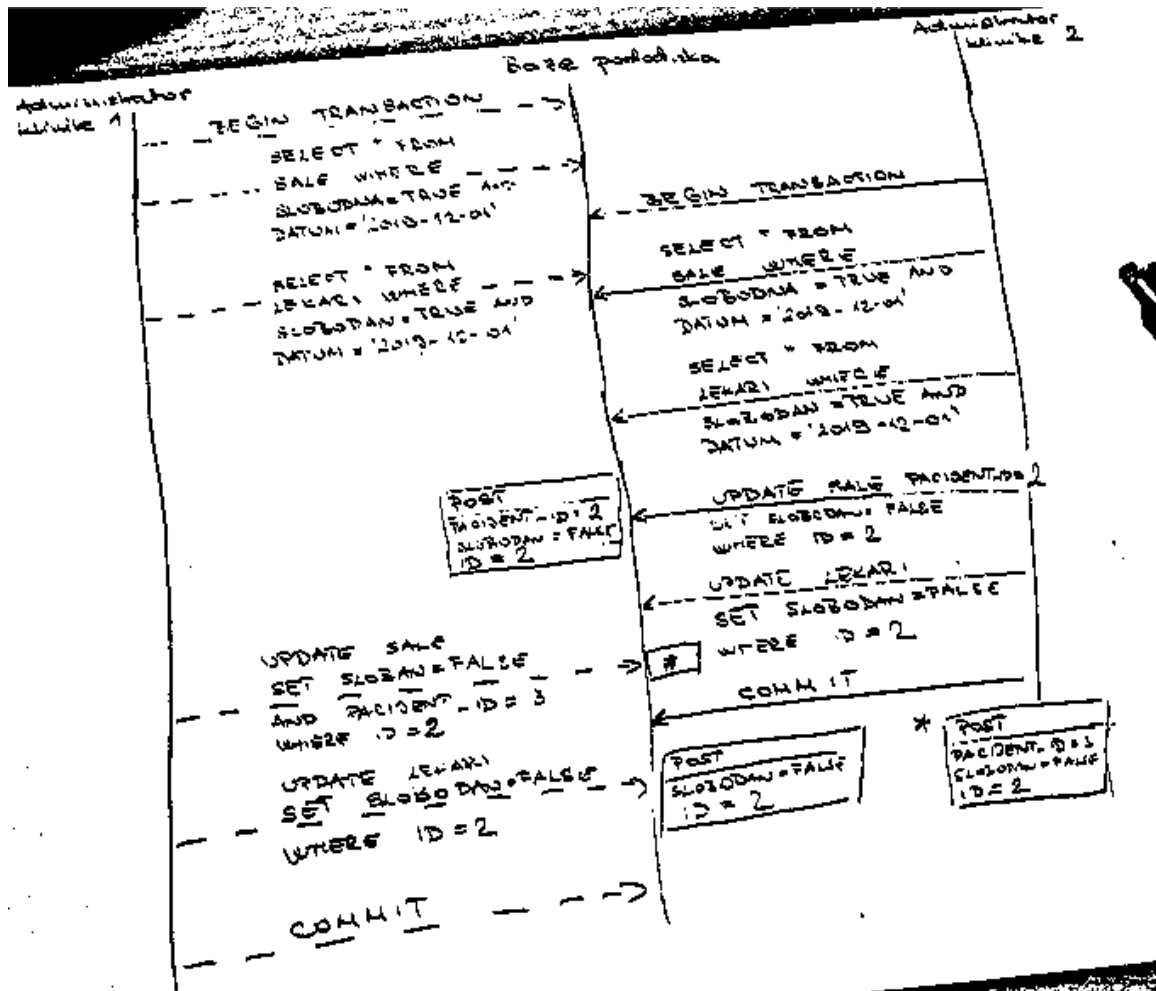 Administrator
klinike 1
Baza podataka
Administrator
klinike 2
BEGIN TRANSACTION
SELECT * FROM
SALE WHERE
SLOBODNA = TRUE AND
DATUM = '2019-12-01'
SELECT * FROM
LEKARI WHERE
SLOBODAN = TRUE AND
DATUM = '2019-12-01'
BEGIN TRANSACTION
SELECT * FROM
SALE WHERE
SLOBODNA = TRUE AND
DATUM = '2019-12-01'
SELECT * FROM
LEKARI WHERE
SLOBODAN = TRUE AND
DATUM = '2019-12-01'
UPDATE SALE PACIDENT_ID=2
SET SLOBODAN = FALSE
WHERE ID = 2
POST
PACIDENT_ID = 2
SLOBODAN = FALSE
ID = 2
UPDATE LEKARI
SET SLOBODAN = FALSE
WHERE ID = 2
UPDATE SALE
SET SLOBAN = FALSE
AND PACIDENT_ID = 3
WHERE ID = 2
*
COMMIT
UPDATE LEKARI
SET SLOBODAN = FALSE
WHERE ID = 2
POST
SLOBODAN = FALSE
ID = 2
* POST
PACIDENT_ID = 3
SLOBODAN = FALSE
ID = 2
COMMIT